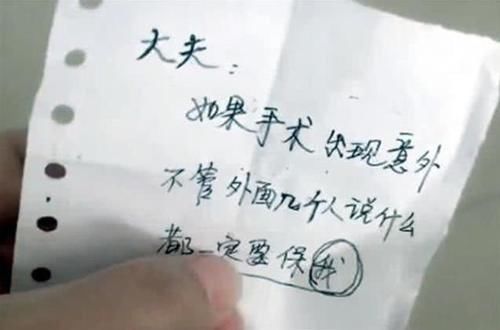 大夫：
如果手术出现意外
不管外面几个人说什么
都一定要保我